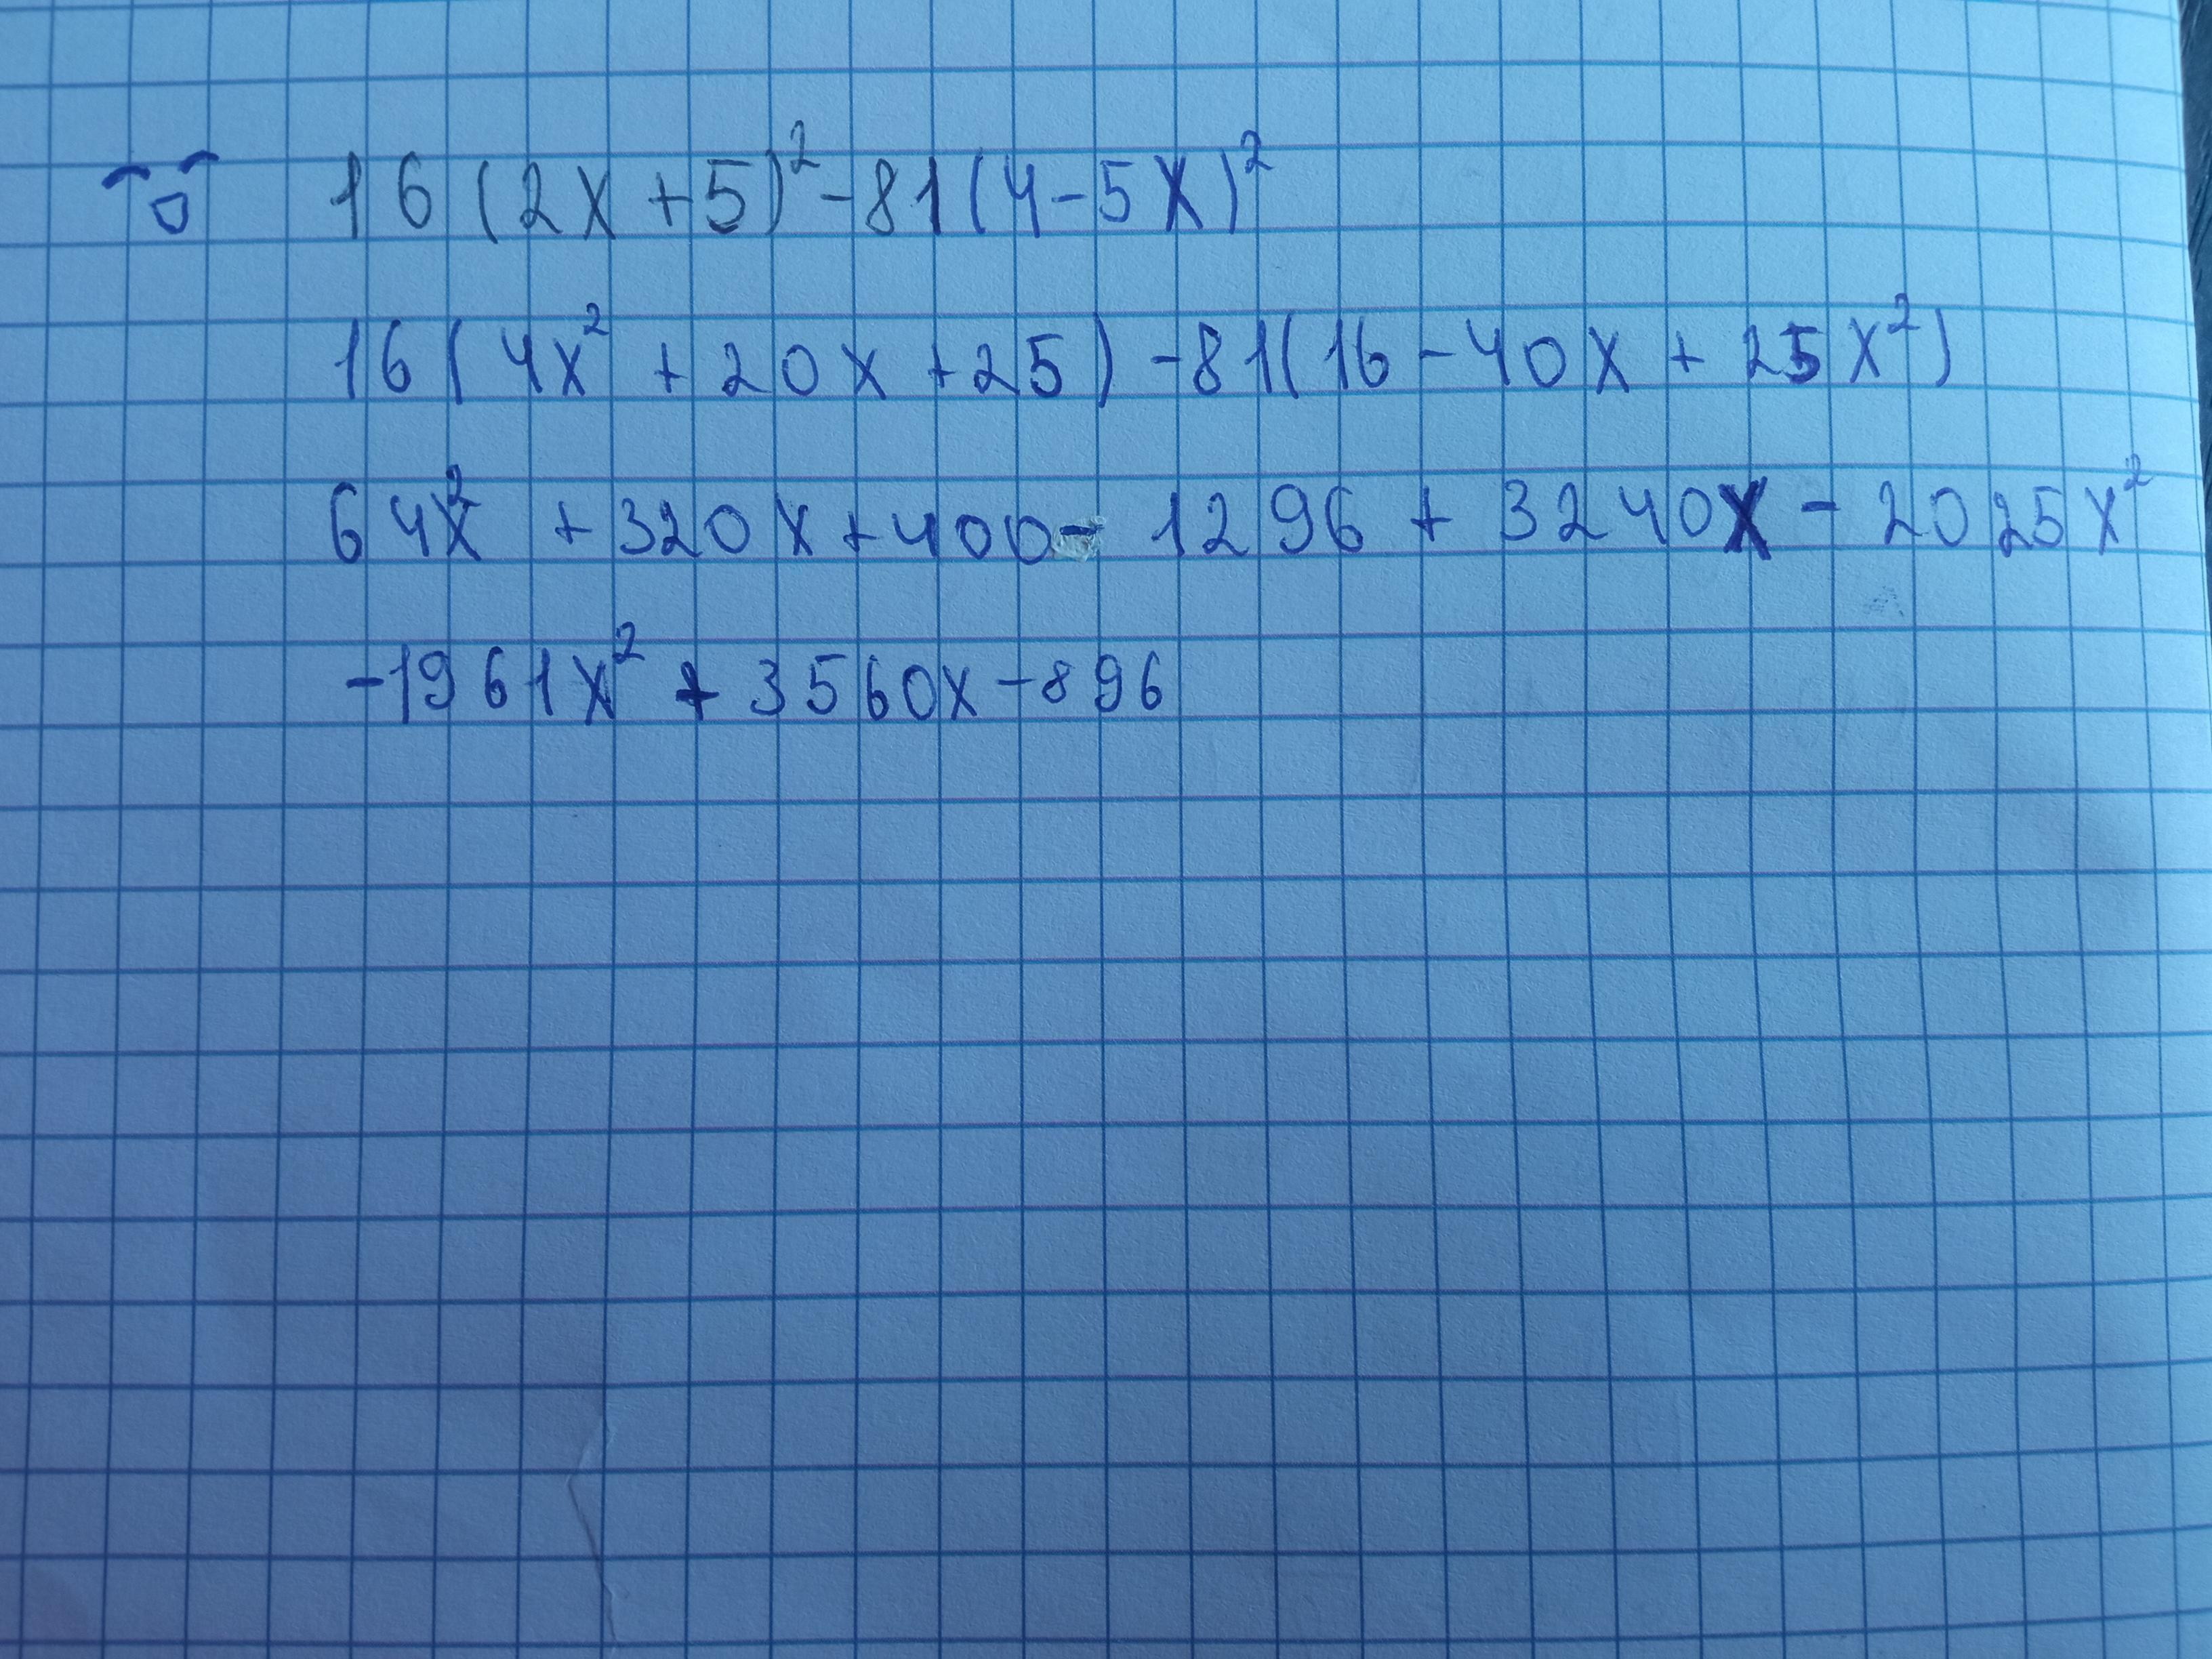 16(2x+5)²-81(4-5x)²
16(4x²+20x+25)-81(16-40x+25x²)
64x²+320x+400-1296+3240x-2025x²
-1961x²+3560x-896